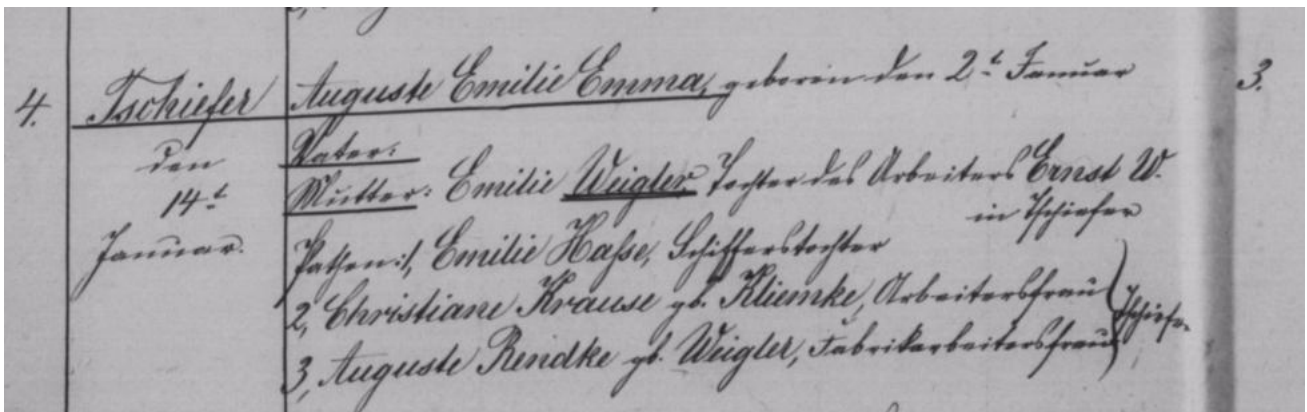 4. Tschiefer Auguste Emilie Emma, geboren den 2t. Januar 3.
den Vater:
14t. Mutter: Emilie Weigler Tochter des Arbeiters Ernst W.
in Tschiefer
Januar. Pathen: 1, Emilie Hasse, Schifferstochter
2, Christiane Krause gb. Kliemke, Arbeitersfrau
3, Auguste Rendke gb. Weigler, Fabrikarbeitersfrau
Tschiefer